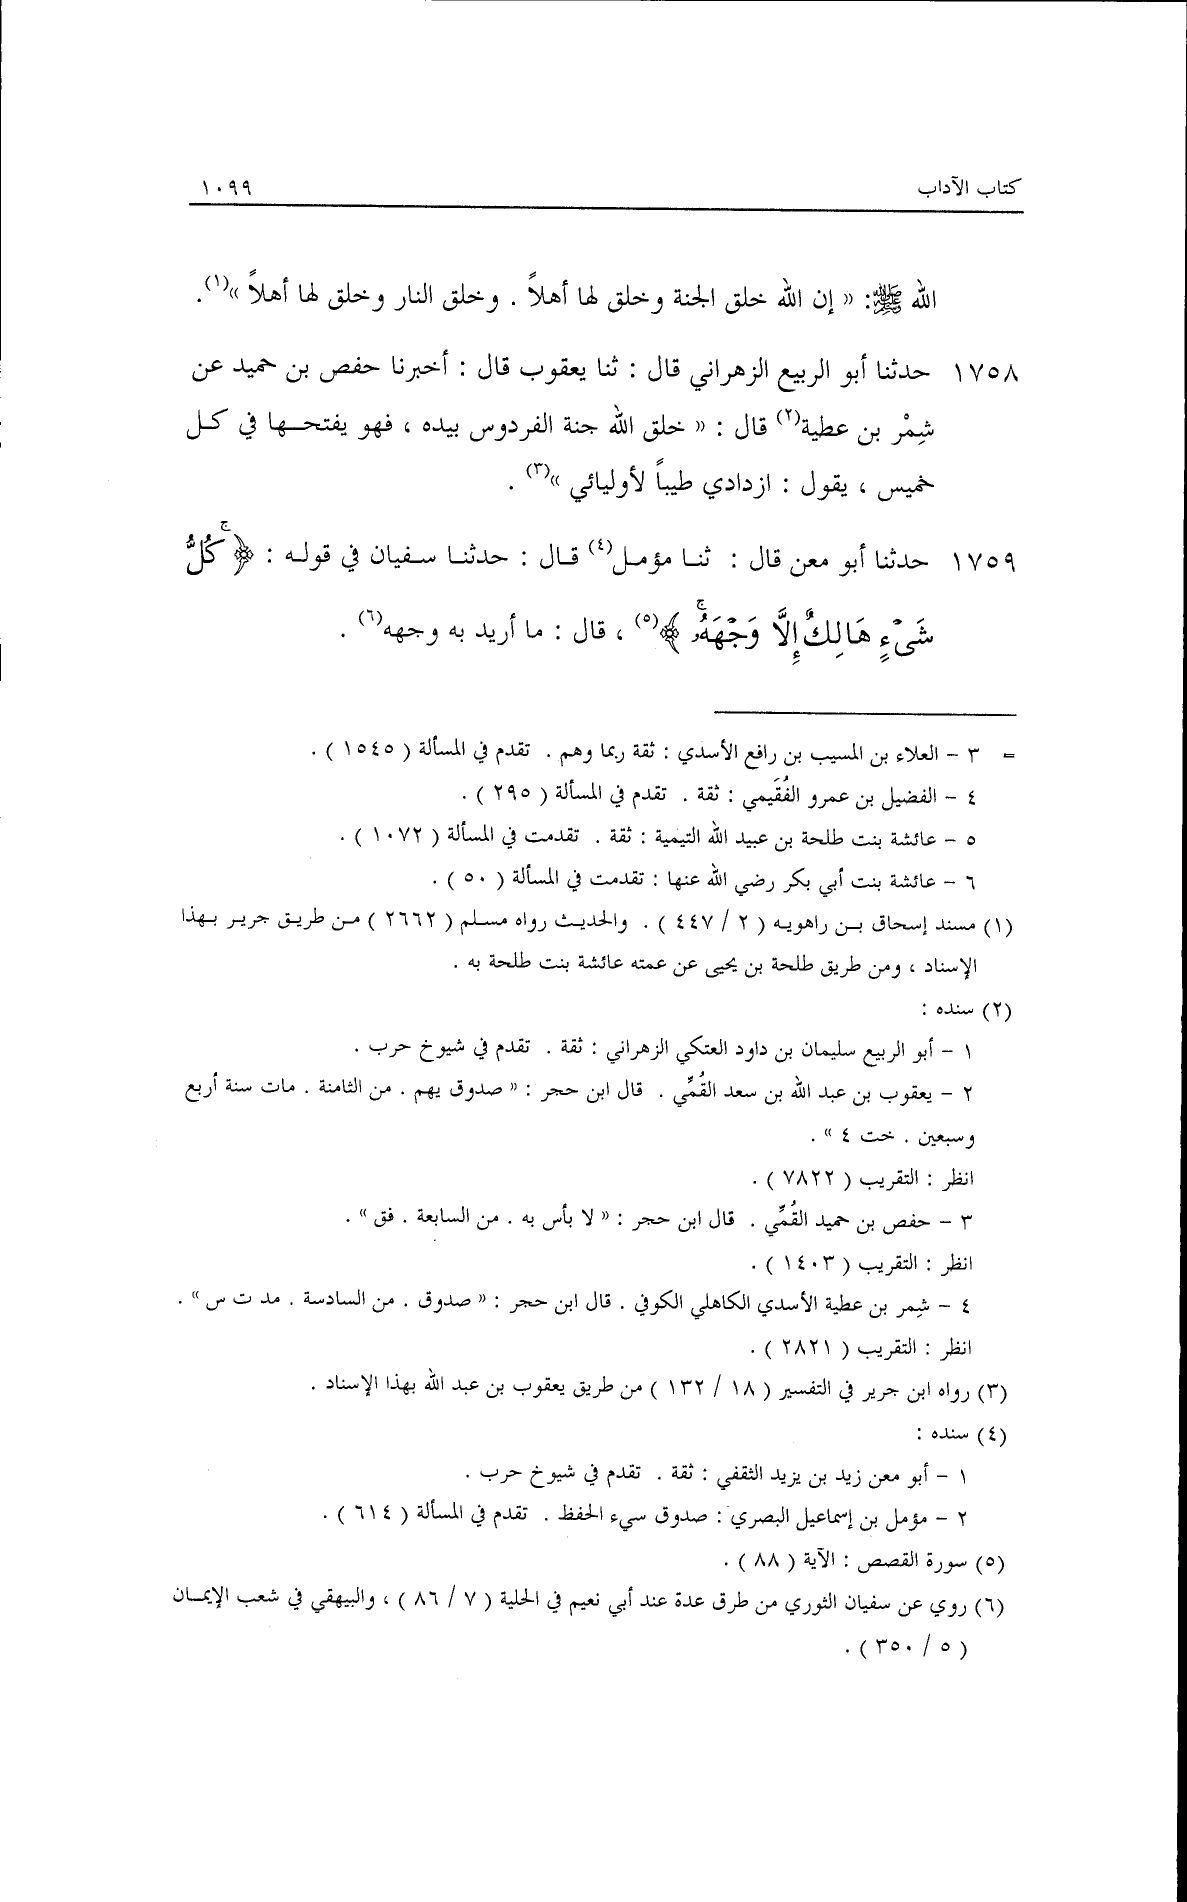 كتاب الآداب ١٠٩٩
الله ﷺ: « إن الله خلق الجنة وخلق لها أهلاً . وخلق النار وخلق لها أهلاً »(١).
١٧٥٨ حدثنا أبو الربيع الزهراني قال : ثنا يعقوب قال : أخبرنا حفص بن حميد عن
شِمْر بن عطية(٢) قال : « خلق الله جنة الفردوس بيده ، فهو يفتحها في كل
خميس ، يقول : ازدادي طيباً لأوليائي »(٣) .
١٧٥٩ حدثنا أبو معن قال : ثنا مؤمل(٤) قال : حدثنا سفيان في قوله : ﴿ كُلُّ
شَيْءٍ هَالِكٌ إِلَّا وَجْهَهُۥ ﴾(٥) ، قال : ما أريد به وجهه(٦) .
= ٣ – العلاء بن المسيب بن رافع الأسدي : ثقة ربما وهم . تقدم في المسألة ( ١٥٤٥ ) .
٤ – الفضيل بن عمرو الفُقَيمي : ثقة . تقدم في المسألة ( ٢٩٥ ) .
٥ – عائشة بنت طلحة بن عبيد الله التيمية : ثقة . تقدمت في المسألة ( ١٠٧٢ ) .
٦ – عائشة بنت أبي بكر رضي الله عنها : تقدمت في المسألة ( ٥٠ ) .
(١) مسند إسحاق بن راهويه ( ٢ / ٤٤٧ ) . والحديث رواه مسلم ( ٢٦٦٢ ) من طريق جرير بهذا
الإسناد ، ومن طريق طلحة بن يحيى عن عمته عائشة بنت طلحة به .
(٢) سنده :
١ – أبو الربيع سليمان بن داود العتكي الزهراني : ثقة . تقدم في شيوخ حرب .
٢ – يعقوب بن عبد الله بن سعد القُمِّي . قال ابن حجر : « صدوق يهم . من الثامنة . مات سنة أربع
وسبعين . خت ٤ » .
انظر : التقريب ( ٧٨٢٢ ) .
٣ – حفص بن حميد القُمِّي . قال ابن حجر : « لا بأس به . من السابعة . فق » .
انظر : التقريب ( ١٤٠٣ ) .
٤ – شِمر بن عطية الأسدي الكاهلي الكوفي . قال ابن حجر : « صدوق . من السادسة . مد ت س » .
انظر : التقريب ( ٢٨٢١ ) .
(٣) رواه ابن جرير في التفسير ( ١٨ / ١٣٢ ) من طريق يعقوب بن عبد الله بهذا الإسناد .
(٤) سنده :
١ – أبو معن زيد بن يزيد الثقفي : ثقة . تقدم في شيوخ حرب .
٢ – مؤمل بن إسماعيل البصري : صدوق سيء الحفظ . تقدم في المسألة ( ٦١٤ ) .
(٥) سورة القصص : الآية ( ٨٨ ) .
(٦) روي عن سفيان الثوري من طرق عدة عند أبي نعيم في الحلية ( ٧ / ٨٦ ) ، والبيهقي في شعب الإيمان
( ٥ / ٣٥٠ ) .